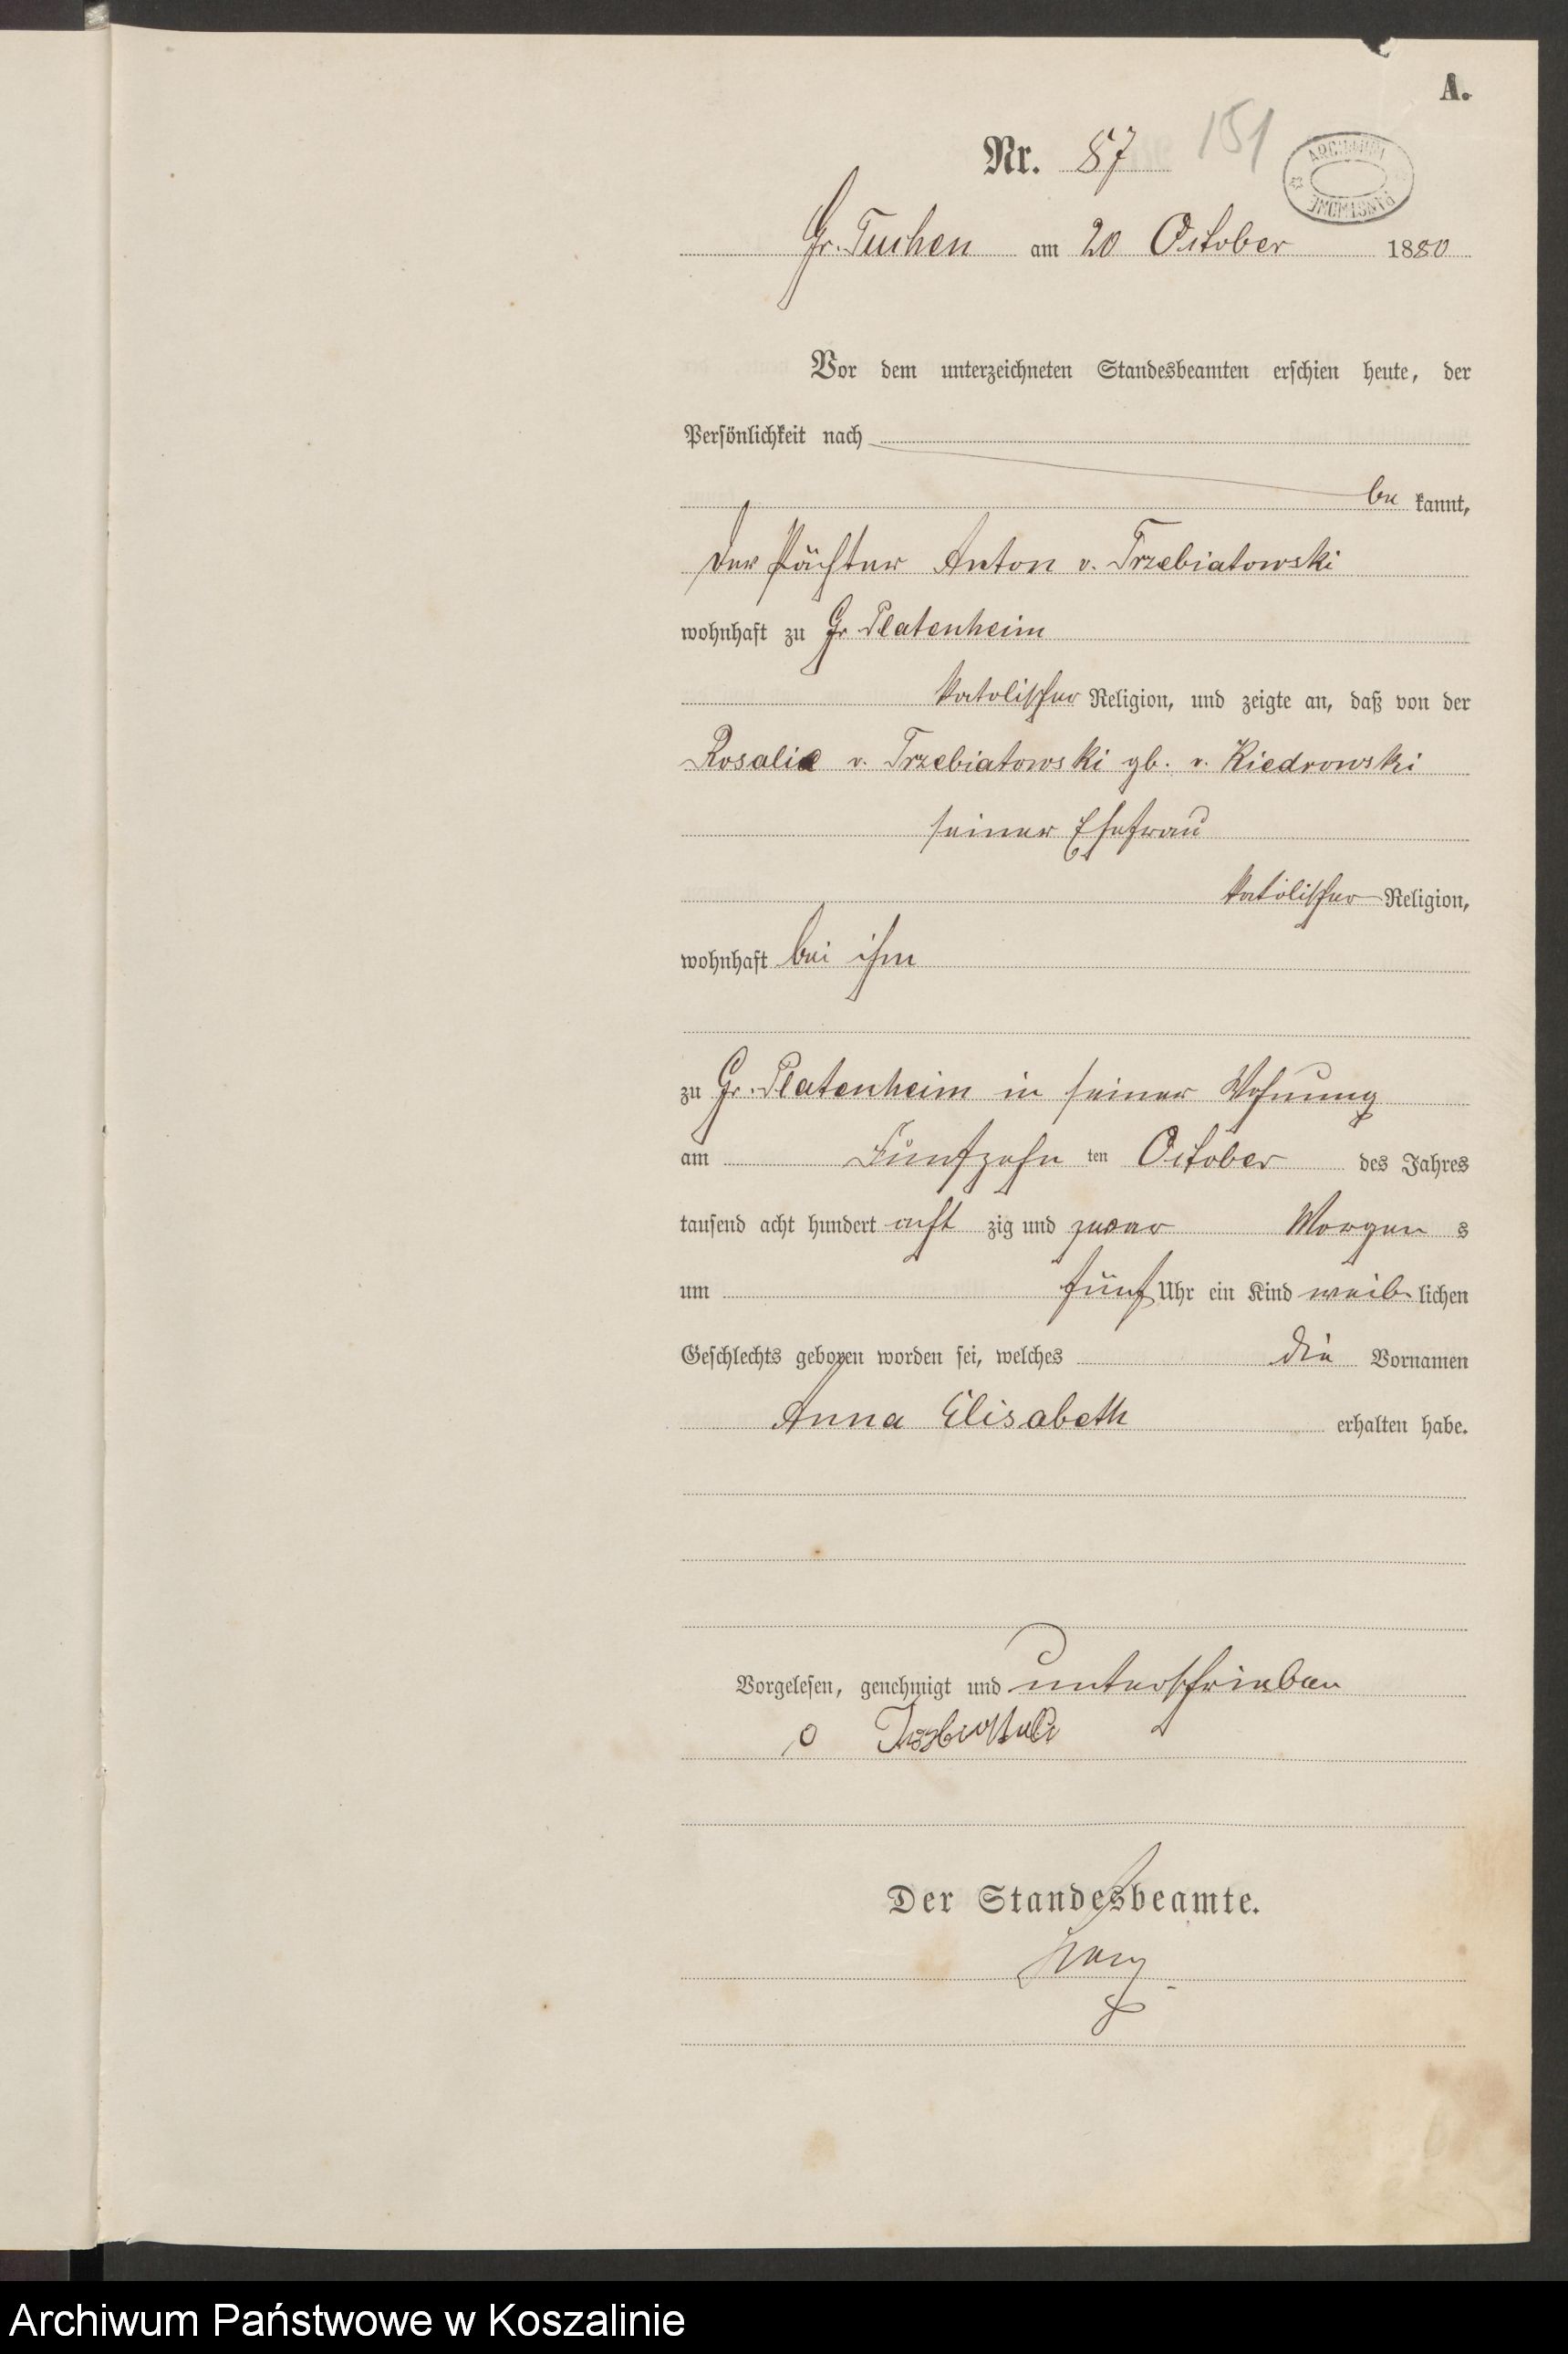 A.
Nr. 87 151
ARCHIWUM PAŃSTWOWE
Gr. Tuchen am 20 October 1880
Vor dem unterzeichneten Standesbeamten erschien heute, der
Persönlichkeit nach
be kannt,
der Pächter Anton v. Trzebiatowski
wohnhaft zu Gr. Platenheim
katolischer Religion, und zeigte an, daß von der
Rosalie v. Trzebiatowski gb. v. Kiedrowski
seiner Ehefrau
katolischer Religion,
wohnhaft bei ihm
zu Gr. Platenheim in seiner Wohnung
am Fünfzehn ten October des Jahres
tausend acht hundert acht zig und zwar Morgen s
um fünf Uhr ein Kind weib lichen
Geschlechts geboren worden sei, welches die Vornamen
Anna Elisabeth erhalten habe.
Vorgelesen, genehmigt und unterschrieben
Der Standesbeamte.
Archiwum Państwowe w Koszalinie